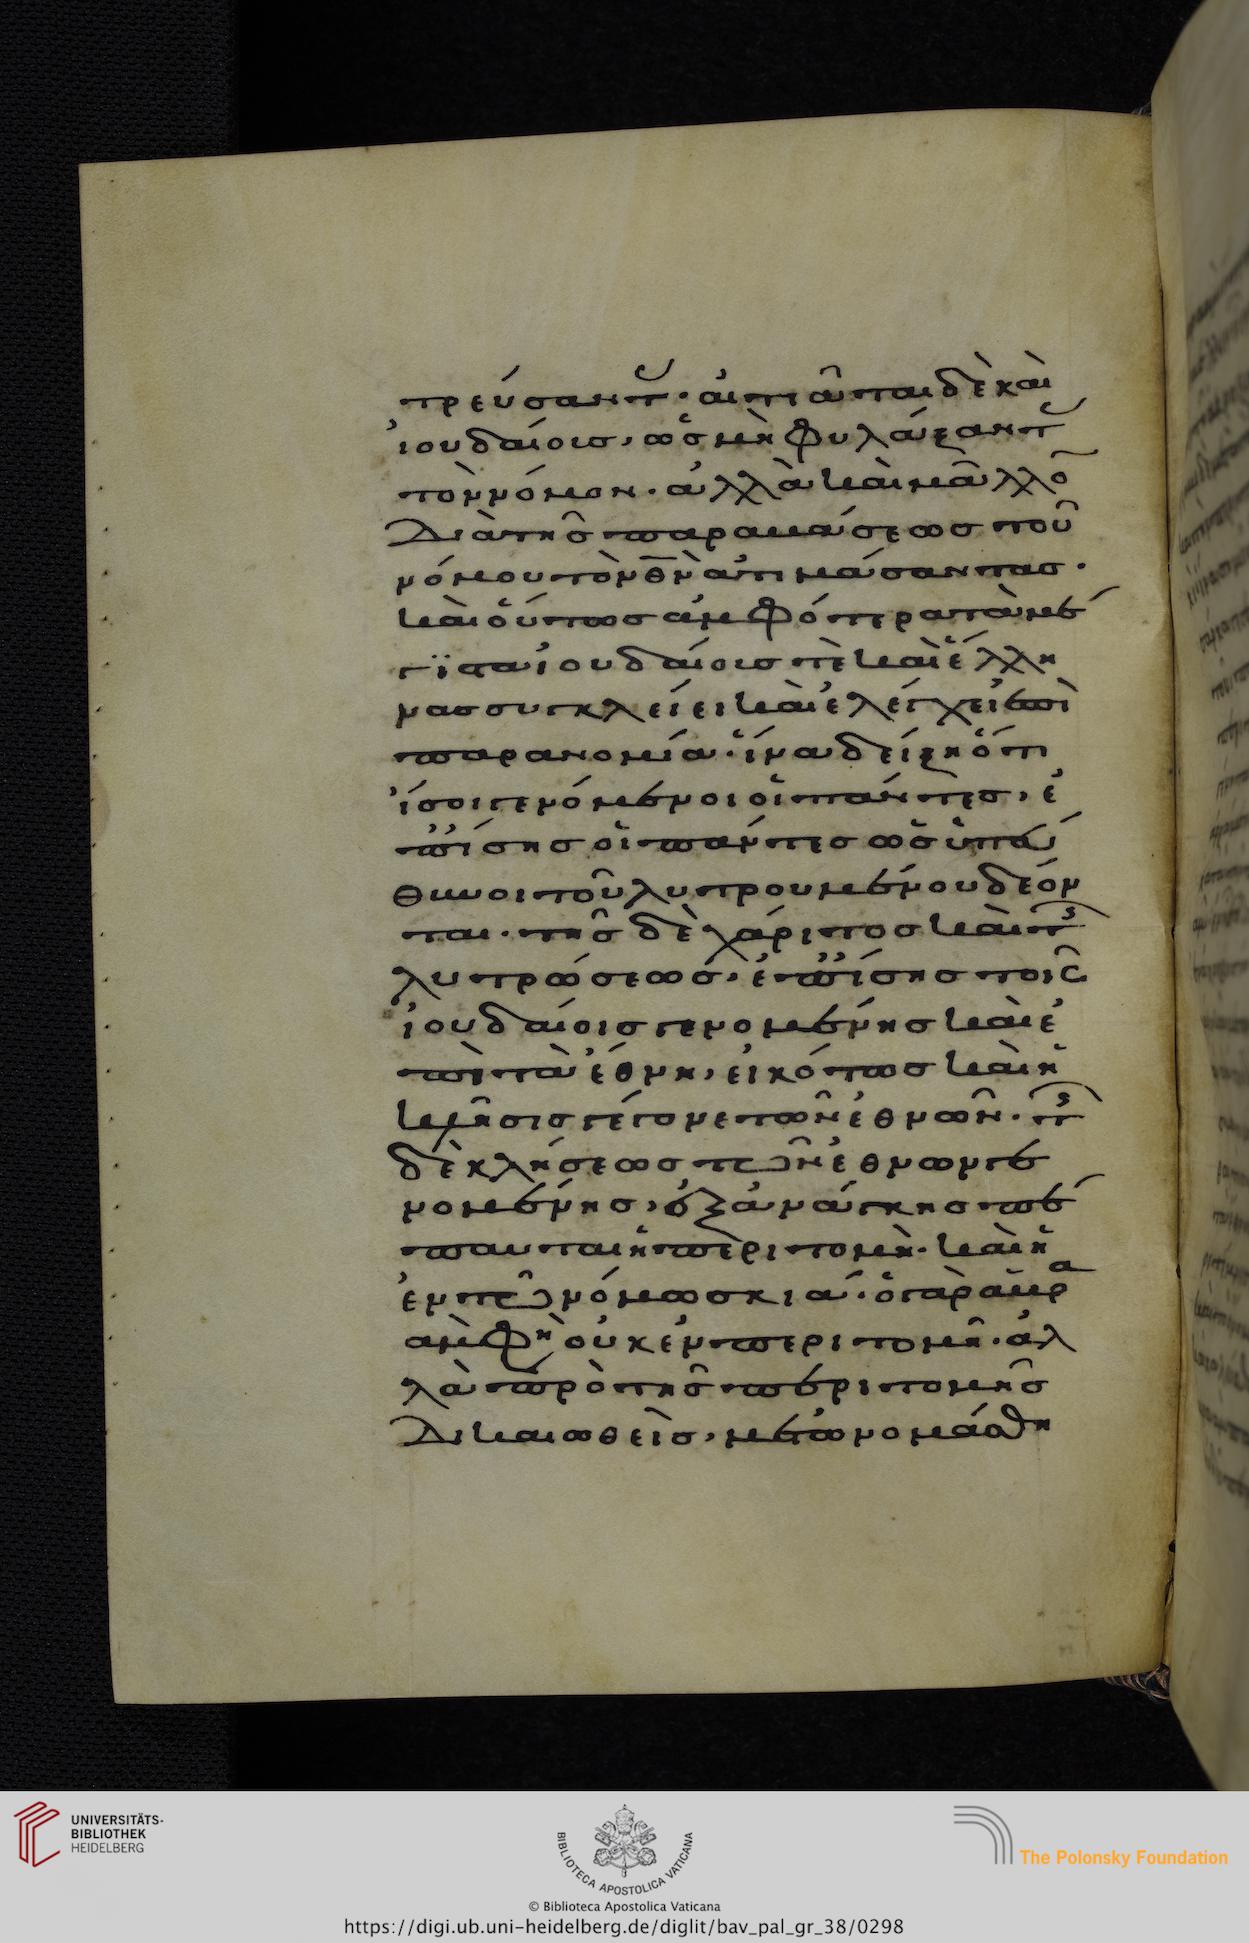 τρεύσαντ· αἰτιᾶται δὲ καὶ
ἰουδαίοις, ὡς μὴ φυλάξαντ
τὸν νόμον. ἀλλὰ καὶ μᾶλλο
διὰ τῆς παραβάσεως τοῦ
νόμου τὸν θν ἀτιμάσαντας.
καὶ οὕτως ἀμφότερα τὰ μέ
ϊουδαίοις τὲ καὶ ἕλλη
νας συγκλείει καὶ ἐλέγχει ἐπὶ
παρανομία· ἵνα δείξη ὅτι
ἴσοι γενόμενοι οἱ πάντες, ἐ
πίσης οἱ πάντες ὡς ὑπεύ
θυνοι τοῦ λυτρουμένου δέον
ται. τῆς δὲ χάριτος καὶ τ
λυτρώσεως, ἐπίσης τοῖς
ἰουδαίοις γενομένης καὶ ἐ
πὶ τὰ ἔθνη, εἰκότως καὶ ἡ
κλῆσις γέγονε τῶν ἐθνῶν. τ
δὲ κλήσεως τῶν ἐθνῶν γε
νομένης, ἐξ ἀνάγκης πέ
παυται ἡ περιτομὴ. καὶ ἡ
ἐν τῶ νόμω σκιά. ὁ γὰρ ἀβρ
ἀμ φη οὐκ ἐν περιτομῆ. ἀλ
λὰ πρὸ τῆς περιτομῆς
δικαιωθεὶς, μετωνομάσθη
UNIVERSITÄTS-
BIBLIOTHEK
HEIDELBERG
BIBLIOTECA APOSTOLICA VATICANA
The Polonsky Foundation
© Biblioteca Apostolica Vaticana
https://digi.ub.uni-heidelberg.de/diglit/bav_pal_gr_38/0298